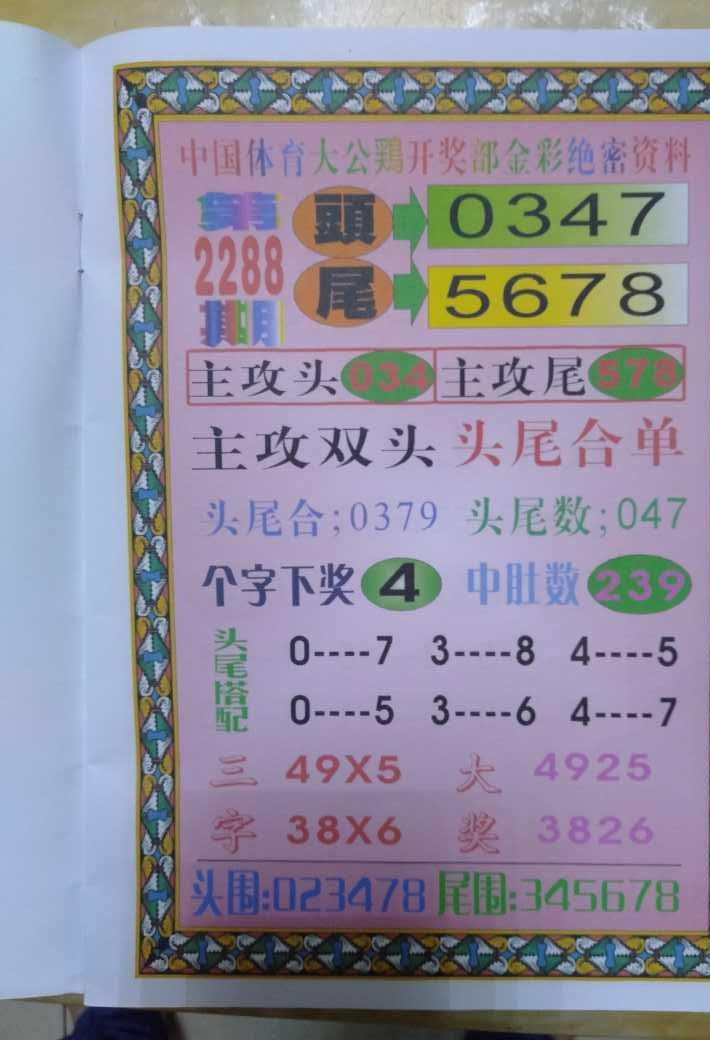 中国体育大公鸡开奖部金彩绝密资料
第2288期
頭 0347
尾 5678
主攻头034 主攻尾578
主攻双头 头尾合单
头尾合;0379 头尾数;047
个字下奖 4 中肚数 239
头尾搭配
0----7 3----8 4----5
0----5 3----6 4----7
三字 49X5 大奖 4925
38X6 3826
头围:023478 尾围:345678